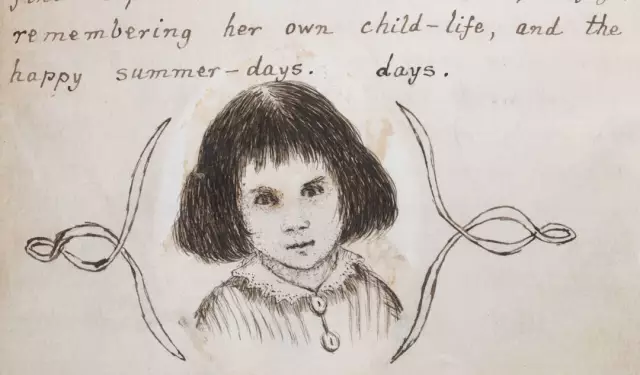 remembering her own child-life, and the
happy summer-days. days.